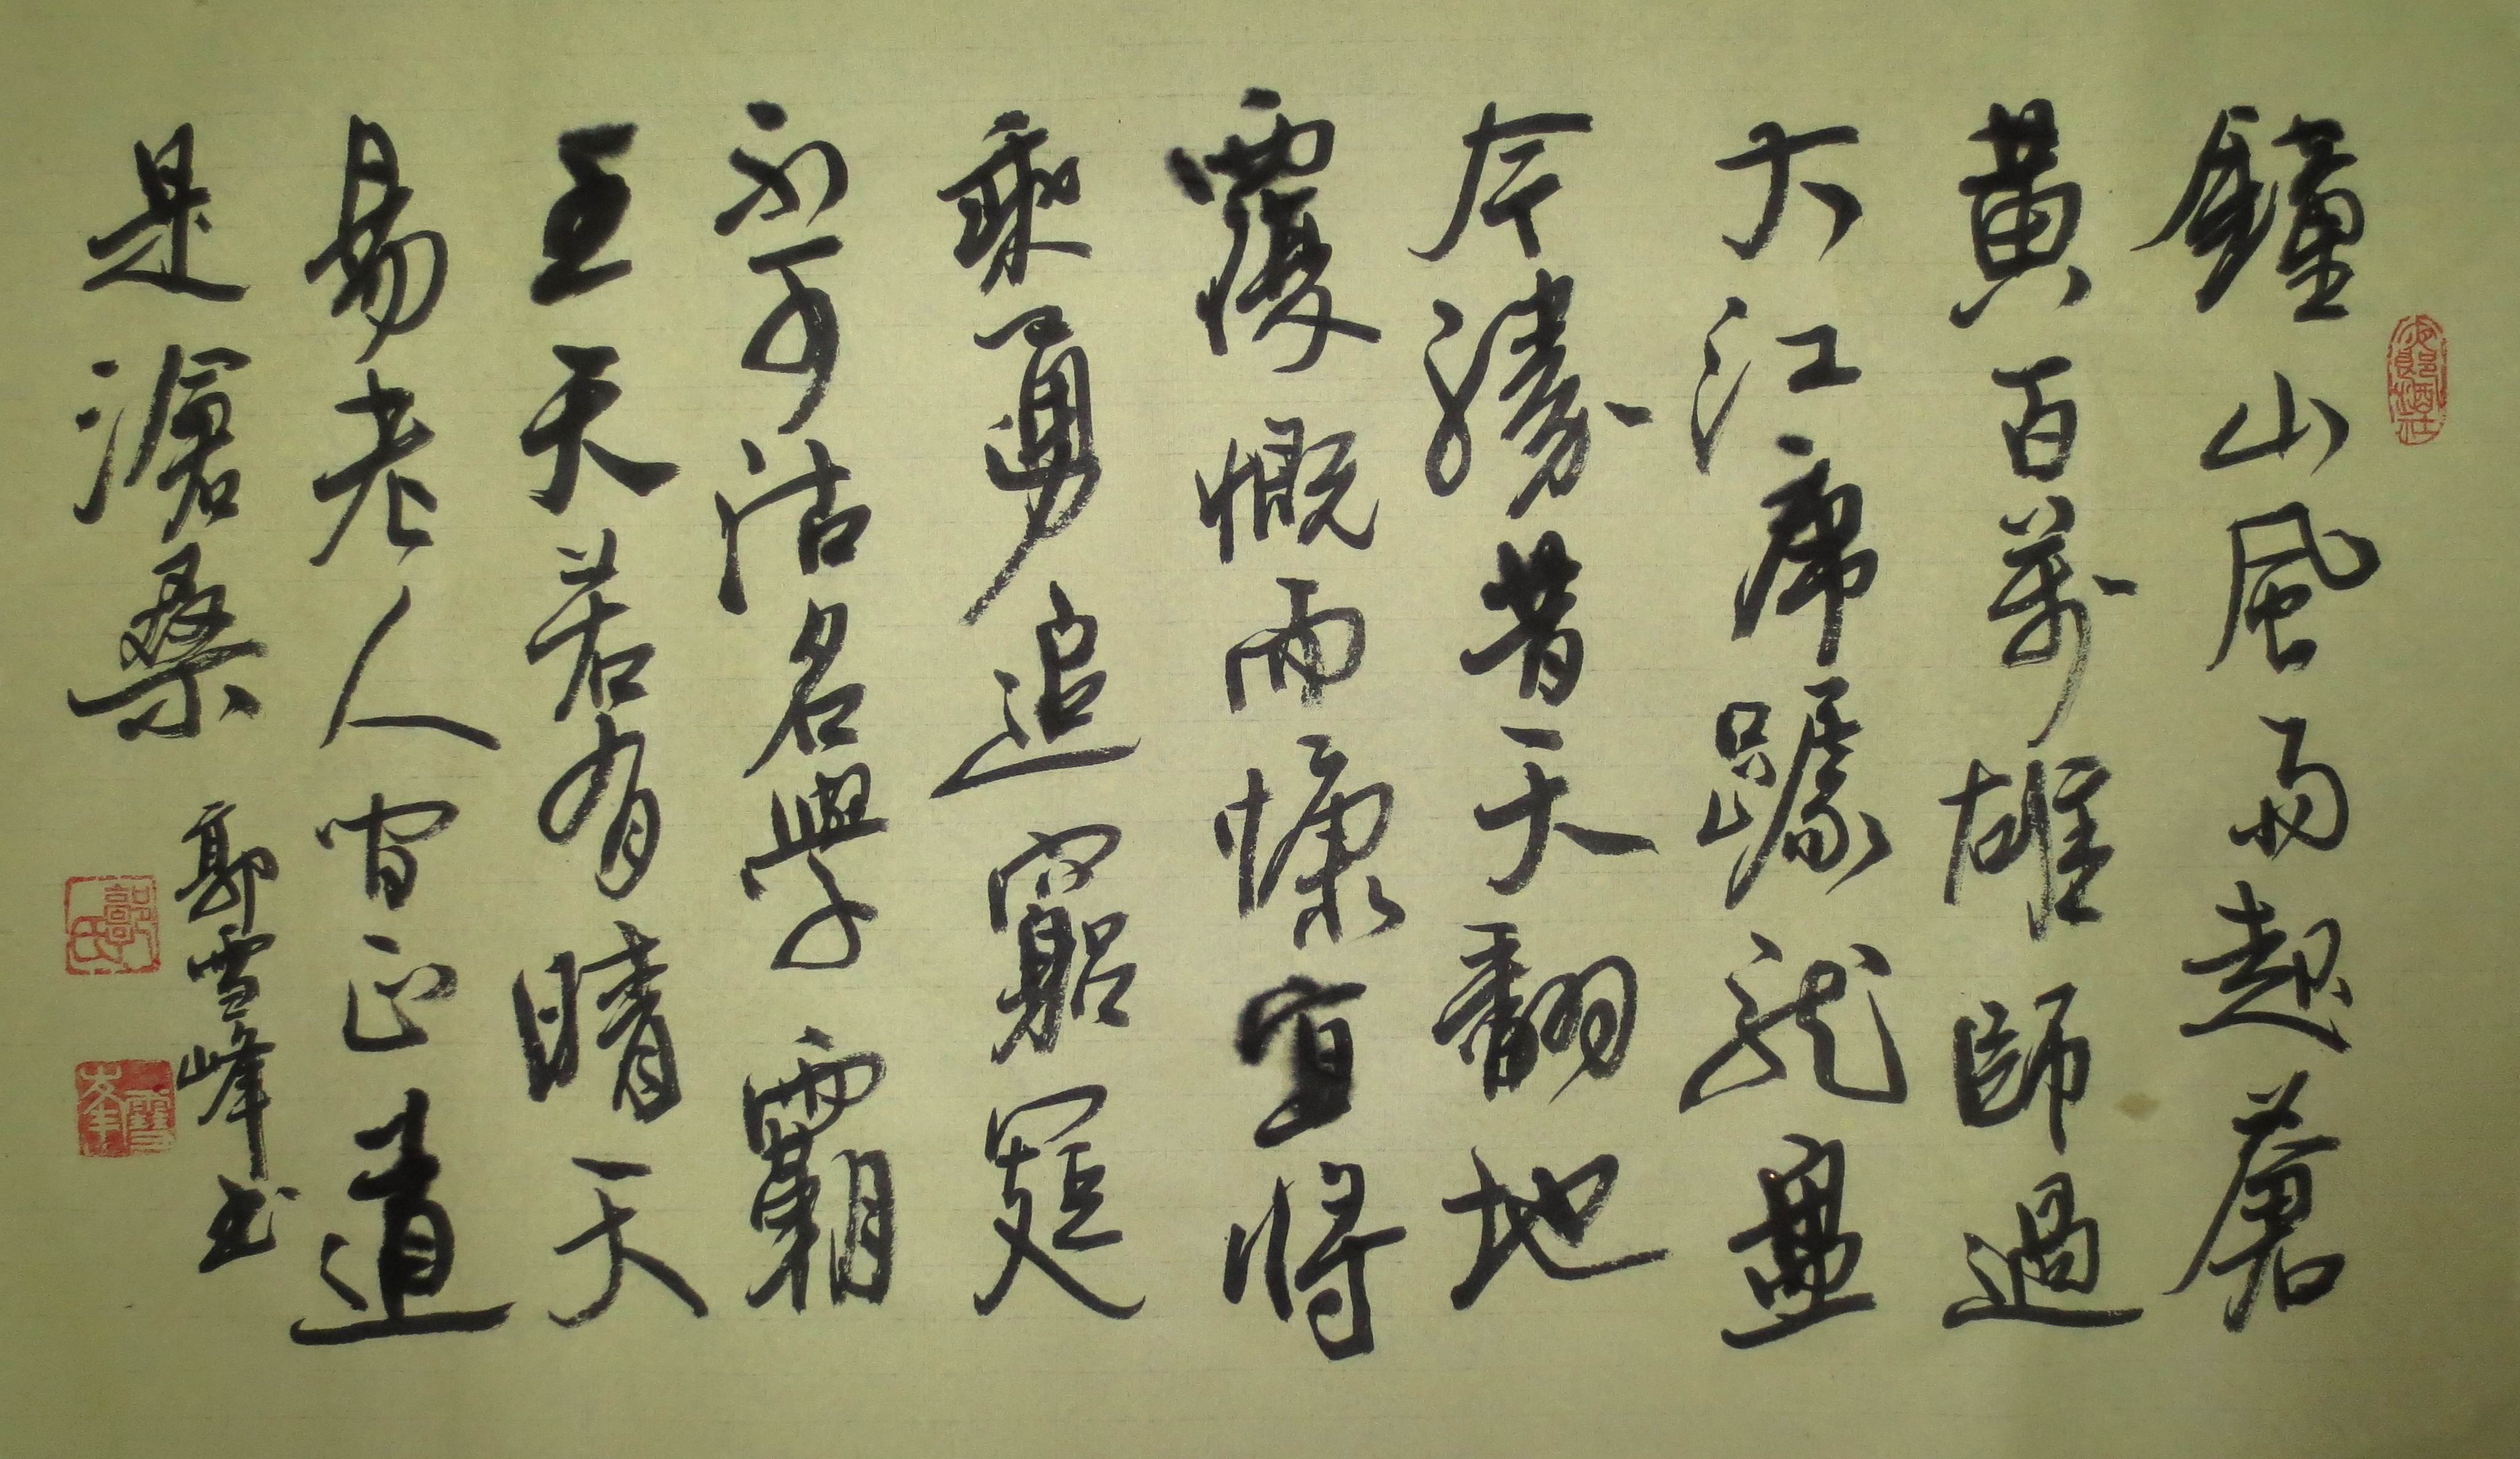 鐘山風雨起蒼
黃百萬雄師過
大江虎躆龍盤
今勝昔天翻地
覆慨而慷宜將
剩勇追窮寇
不可沽名學霸
王天若有晴天
易老人間正道
是滄桑
郭雪峰书
郭氏
雪峯